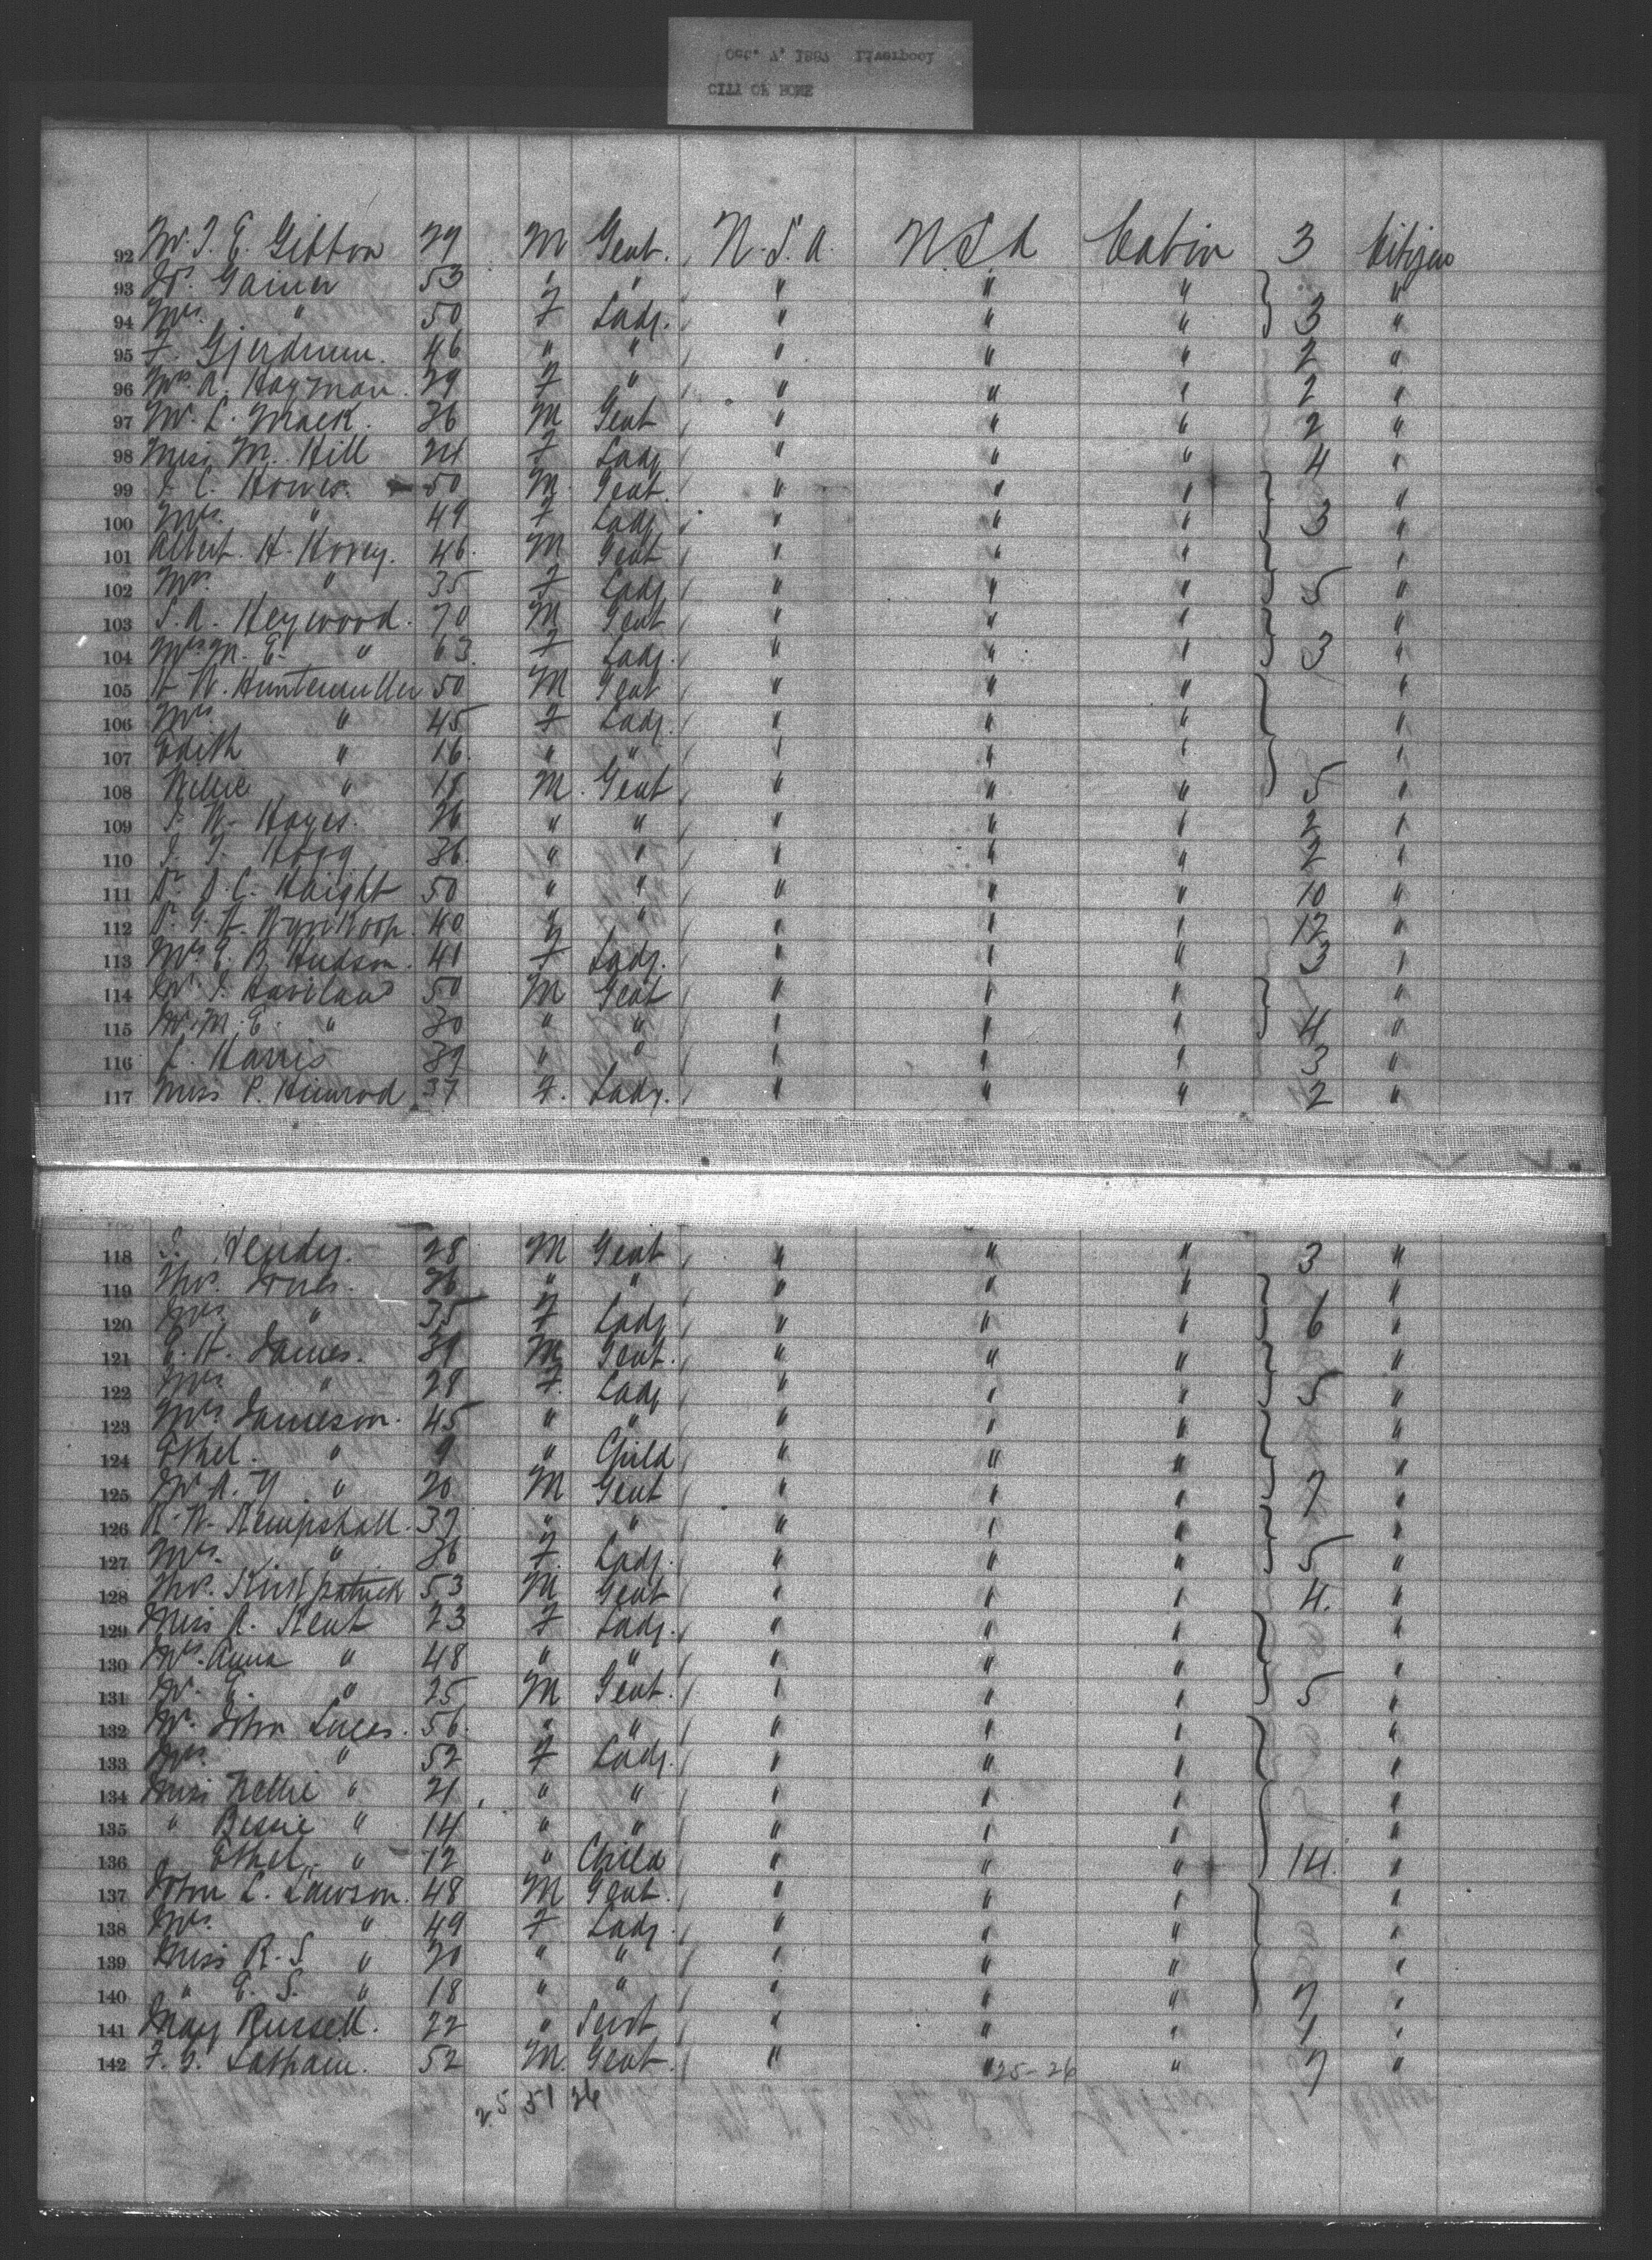 Oct. 7, 1887 Liverpool
CITY OF ROME
92 Mr. J. E. Gibbon 29 M Gent. U.S.A. U S A Cabin 3 Citizen
93 Mr. Gainer 53 " " " " " "
94 Mrs. " 50 F Lady. " " " 3 "
95 F. Gjerdrum. 46 " " " " " 2 "
96 Mrs A. Hayman. 29 F " " " " 2 "
97 Mr. L. Mack. 36 M Gent " " " 2 "
98 Miss M. Hill 24 F Lady " " " 4 "
99 Howes. 50 M Gent. " " " "
100 Mrs. " 49 F Lady " " " 3 "
101 Albert H. Hovey. 46. M Gent " " " "
102 Mrs. " 35 F Lady " " " 5 "
103 S. A. Heywood. 70 M Gent " " " "
104 Mrs M. E. " 63. F Lady. " " " 3 "
105 H W. Huntemuller 50 M Gent " " " "
106 Mrs. " 45 F Lady. " " " "
107 Edith " 16. " " " " " "
108 Willie " 15 M. Gent " " " 5 "
109 W. Hayes. 26 " " " " " 2 "
110 Hogg 36. " " " " " 2 "
111 Dr. D. C. Haight 50 " " " " " 10 "
112 Dr. G. H. Wynkoop. 40 " " " " " 12 "
113 Mrs. E. R. Hudson. 41 F Lady. " " " 3 "
114 Mr. J. Haviland 50 M Gent " " " "
115 Mr. M. E. " 30 " " " " " 4 "
116 L. Harris 39 " " " " " 3 "
117 Miss P. Himrod 37 F. Lady. " " " 2 "
118 S. Hendy. 28 M Gent " " " 3 "
119 Thos. 36 " " " " " "
120 Mrs. " 35 F Lady " " " 6 "
121 E. H. James. 39 M Gent. " " " "
122 Mrs " 28 F. Lady " " " 5 "
123 Mrs Jameson. 45 " " " " " "
124 Ethel. " 9 " Child " " " "
125 Mr A. Y. " 20 M Gent " " " 7 "
126 R. W. Kempshall. 37 " " " " " "
127 Mrs. " 36 F. Lady. " " " 5 "
128 Thos. Kirkpatrick 53 M Gent " " " 4. "
129 Miss A. Kent 23 F Lady. " " " "
130 Mrs. Anna " 48 " " " " " "
131 Mr. E. " 25 M Gent. " " " 5 "
132 Mr. John Luces. 56. " " " " " "
133 Mrs. " 52 F Lady. " " " "
134 Miss Nellie " 21 " " " " " "
135 " Bessie " 14 " " " " " "
136 " Ethel " 12 " Child " " " 14. "
137 John L. Lawson. 48 M Gent. " " " "
138 Mrs. " 49 F Lady. " " " "
139 Miss R. S. " 20 " " " " " "
140 " E. S. " 18 " " " " " 7 "
141 May Russell. 22 " Servt " " " 1. "
142 F. J. Latham. 52 M. Gent. " " " 7 "
25-26
25 51 26